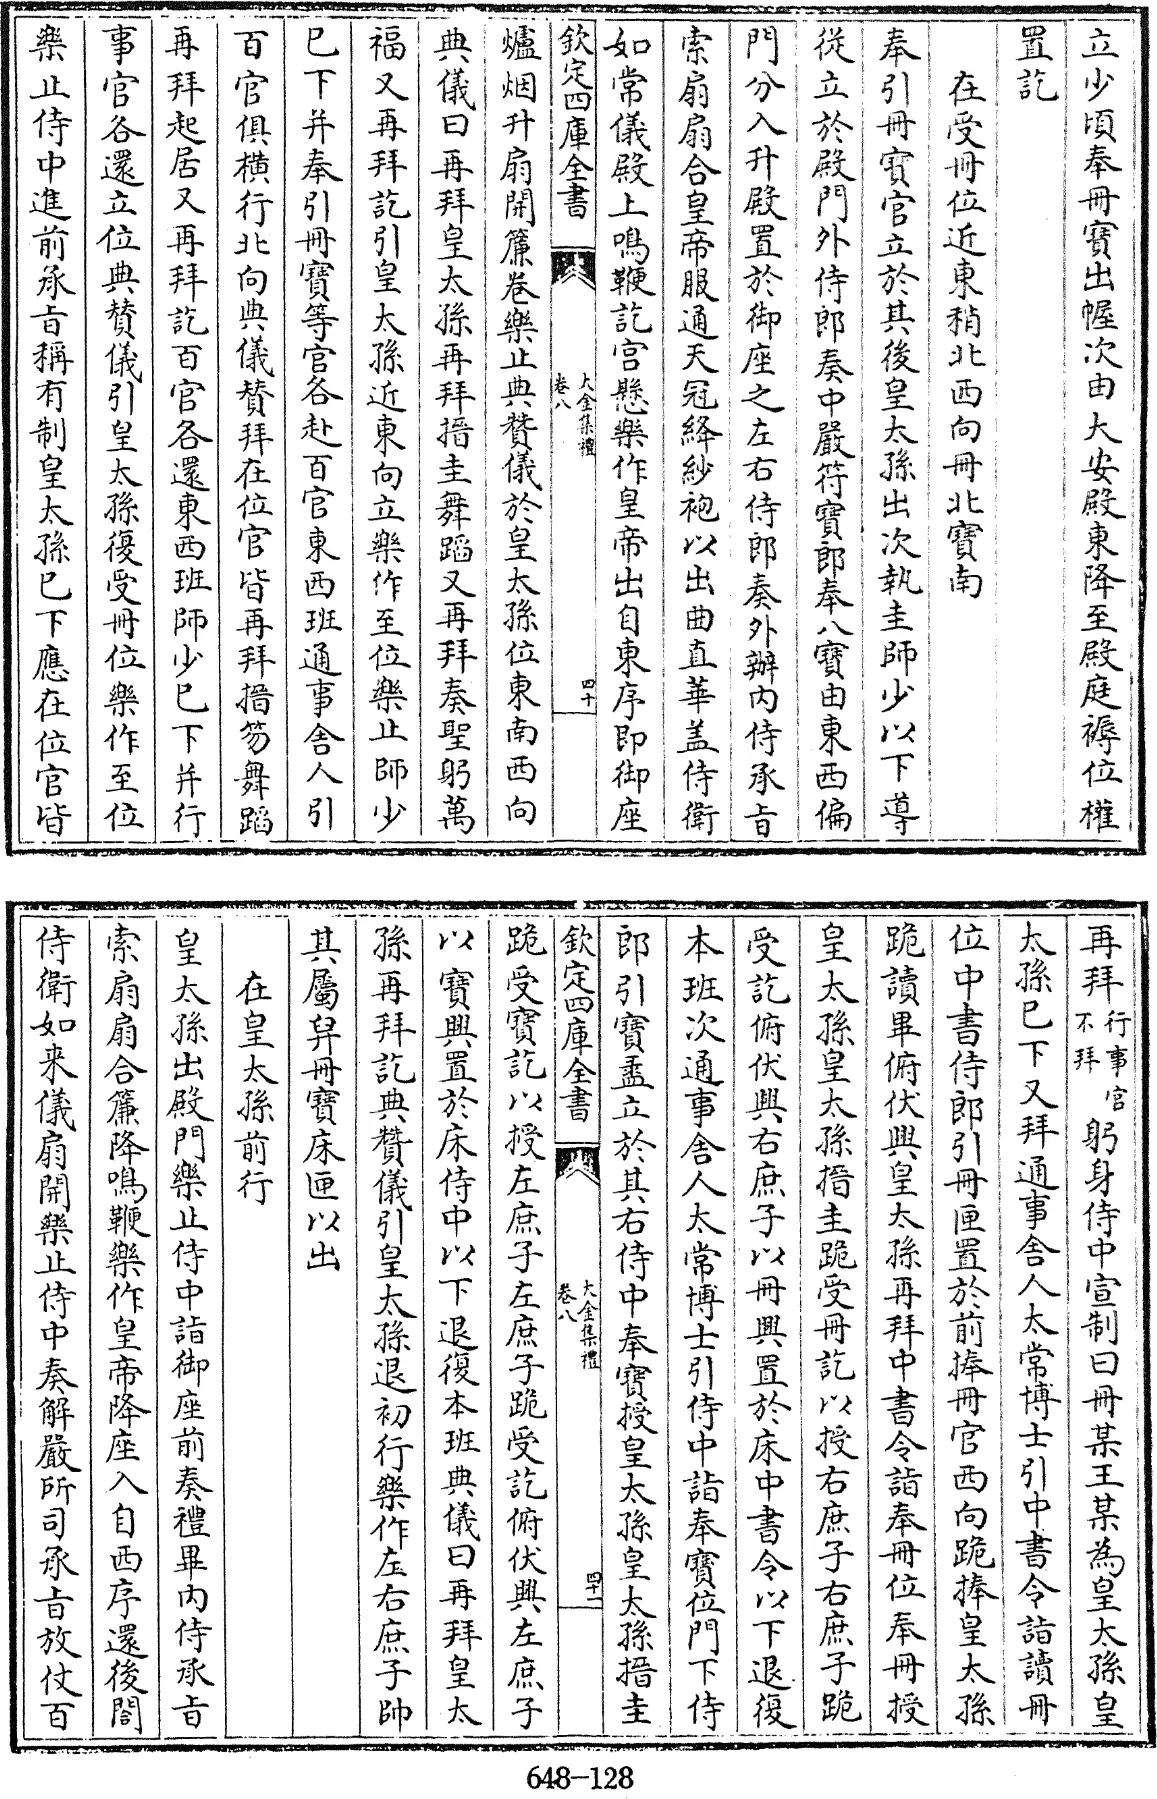 立少頃奉冊寶出幄次由大安殿東降至殿庭褥位權
置訖
在受冊位近東稍北西向冊北寶南
奉引冊寶官立於其後皇太孫出次執圭師少以下導
從立於殿門外侍郎奏中嚴符寶郎奉八寶由東西偏
門分入升殿置於御座之左右侍郎奏外辦內侍承旨
索扇扇合皇帝服通天冠絳紗袍以出曲直華盖侍衛
如常儀殿上鳴鞭訖宫懸樂作皇帝出自東序即御座
欽定四庫全書
大金集禮
卷八
四十
爐烟升扇開簾卷樂止典賛儀於皇太孫位東南西向
典儀曰再拜皇太孫再拜搢圭舞蹈又再拜奏聖躬萬
福又再拜訖引皇太孫近東向立樂作至位樂止師少
已下并奉引冊寶等官各赴百官東西班通事舍人引
百官俱橫行北向典儀賛拜在位官皆再拜搢笏舞蹈
再拜起居又再拜訖百官各還東西班師少已下并行
事官各還立位典賛儀引皇太孫復受冊位樂作至位
樂止侍中進前承旨稱有制皇太孫已下應在位官皆
再拜行事官不拜躬身侍中宣制曰冊某王某為皇太孫皇
太孫已下又拜通事舍人太常博士引中書令詣讀冊
位中書侍郎引冊匣置於前捧冊官西向跪捧皇太孫
跪讀畢俯伏興皇太孫再拜中書令詣奉冊位奉冊授
皇太孫皇太孫搢圭跪受冊訖以授右庶子右庶子跪
受訖俯伏興右庶子以冊興置於床中書令以下退復
本班次通事舍人太常博士引侍中詣奉寶位門下侍
郎引寶盝立於其右侍中奉寶授皇太孫皇太孫搢圭
欽定四庫全書
大金集禮
卷八
四十一
跪受寶訖以授左庶子左庶子跪受訖俯伏興左庶子
以寶興置於床侍中以下退復本班典儀曰再拜皇太
孫再拜訖典賛儀引皇太孫退初行樂作左右庶子帥
其屬舁冊寶床匣以出
在皇太孫前行
皇太孫出殿門樂止侍中詣御座前奏禮畢內侍承旨
索扇扇合簾降鳴鞭樂作皇帝降座入自西序還後閤
侍衛如来儀扇開樂止侍中奏解嚴所司承旨放仗百
648-128